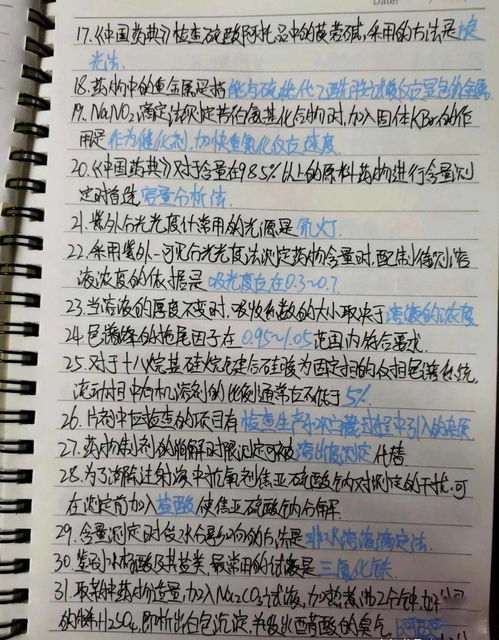 17.《中国药典》检查硫酸阿托品中的莨菪碱,采用的方法是旋
光法.
18.药物中的重金属是指能与硫代乙酰胺试液反应显色的金属.
19.NaNO2滴定法测定芳伯氨基化合物时,加入固体KBr的作
用是作为催化剂,加快重氮化反应速度
20.《中国药典》对于含量在98.5%以上的原料药物进行含量测
定时首选容量分析法.
21.紫外分光光度计常用的光源是氘灯.
22.采用紫外-可见分光光度法测定药物含量时,配制待测溶
液浓度的依据是吸光度在0.3~0.7.
23.当溶液的厚度不变时,吸收系数的大小取决于溶液的浓度
24.色谱峰的拖尾因子在0.95~1.05范围内符合要求.
25.对于十八烷基硅烷键合硅胶为固定相的反相色谱系统,
流动相中有机溶剂的比例通常应不低于5%.
26.片剂中应检查的项目有检查生产和贮藏过程中引入的杂质
27.药物制剂的崩解时限测定可被溶出度测定代替
28.为了消除注射液中抗氧剂焦亚硫酸钠对测定的干扰,可
在测定前加入盐酸使焦亚硫酸钠分解.
29.含量测定时受水分影响的方法是非水溶液滴定法.
30.鉴别水杨酸及其盐类,最常用的试液是三氯化铁
31.取某药物适量,加入Na2CO3试液,加热煮沸2分钟,加
的稀H2SO4,即析出白色沉淀,并发出醋酸的臭气.